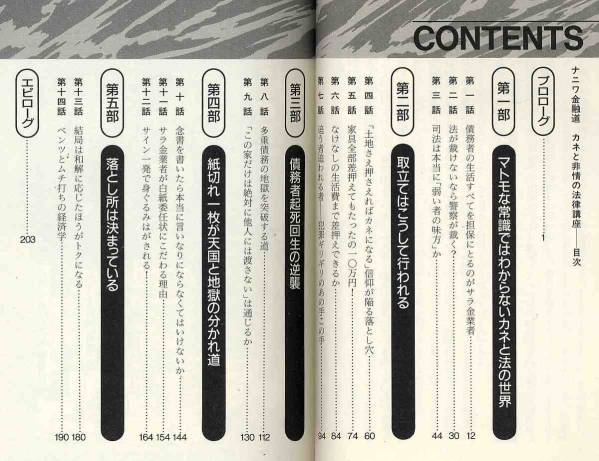 CONTENTS
ナニワ金融道 カネと非情の法律講座──目次
プロローグ 1
第一部 マトモな常識ではわからないカネと法の世界
第一話 債務者の生活すべてを担保にとるのがサラ金業者 12
第二話 法が裁けないなら警察が裁く? 30
第三話 司法は本当に「弱い者の味方」か 44
第二部 取立てはこうして行われる
第四話 「土地さえ押さえればカネになる」信仰が陥る落とし穴 60
第五話 家具全部差押えてもたったの一〇万円! 74
第六話 なけなしの生活費まで差押えできるか 84
第七話 追う者追われる者──犯罪ギリギリのあの手この手 94
第三部 債務者起死回生の逆襲
第八話 多重債務の地獄を突破する道 112
第九話 「この家だけは絶対に他人には渡さない」は通じるか 130
第四部 紙切れ一枚が天国と地獄の分かれ道
第十話 念書を書いたら本当に言いなりにならなくてはいけないか 144
第十一話 サラ金業者が白紙委任状にこだわる理由 154
第十二話 サイン一発で身ぐるみはがされる! 164
第五部 落とし所は決まっている
第十三話 結局は和解に応じたほうがトクになる 180
第十四話 ベンツとムチ打ちの経済学 190
エピローグ 203